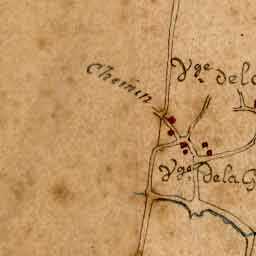 Chemin
Vge. de la
Vge. de la G